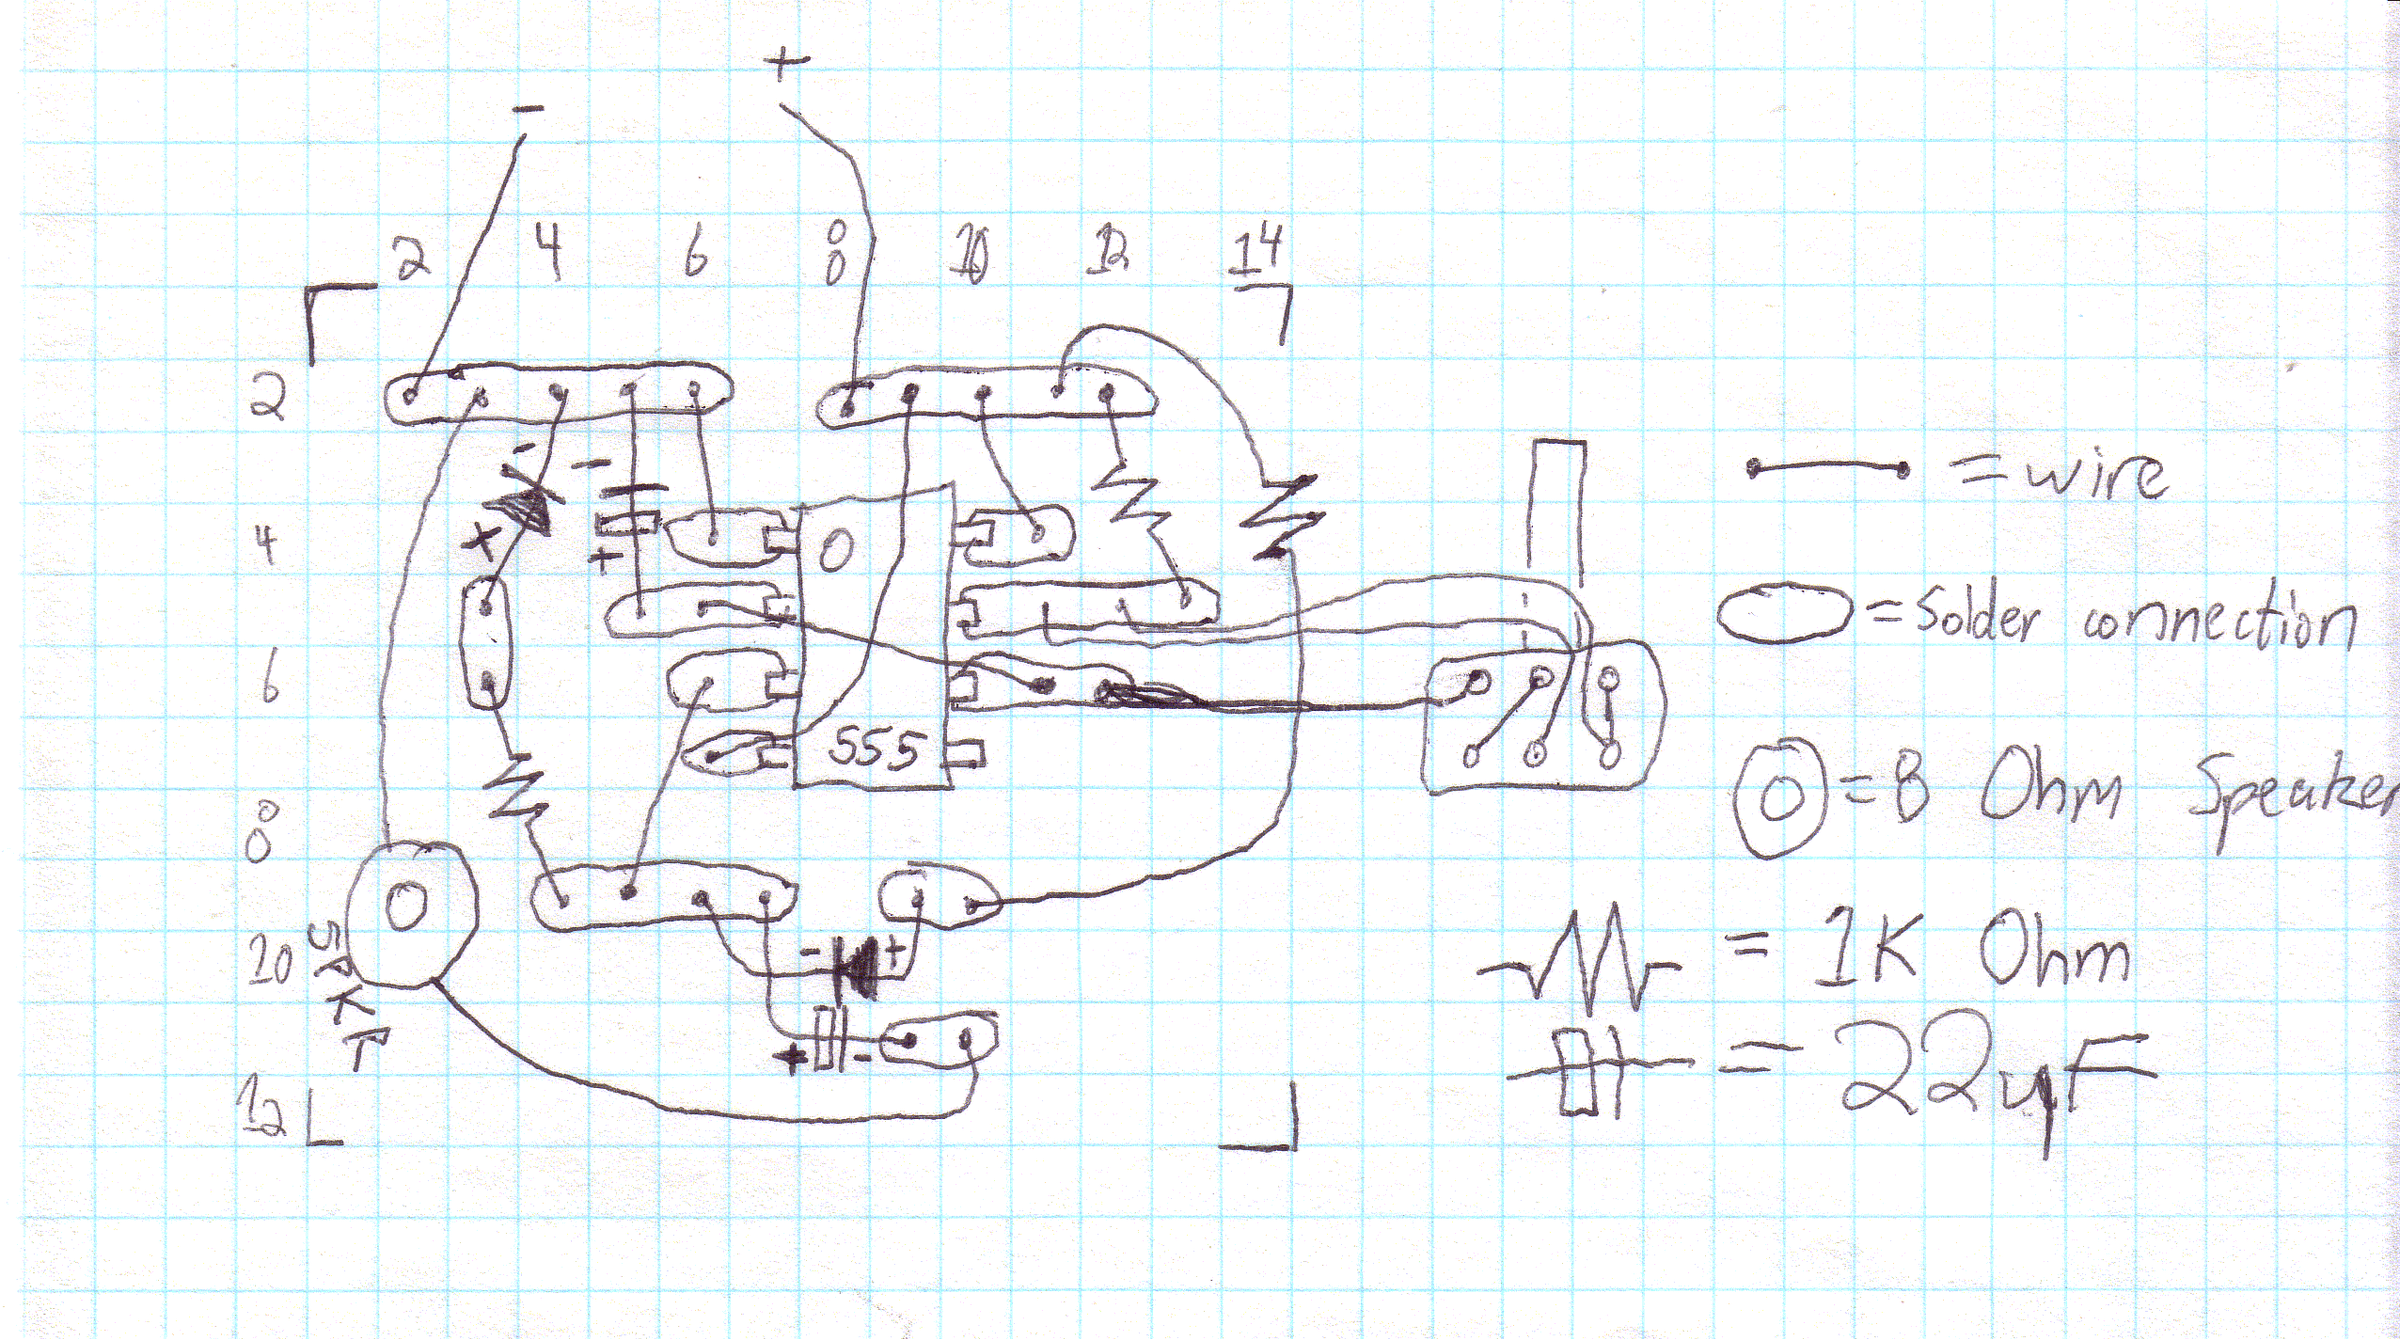 +
-
2 4 6 8 10 12 14
2
- -
= wire
4
+ +
= Solder connection
6
555
= 8 Ohm Speaker
8
- +
10
SPKR
= 1K Ohm
+ -
= 22uF
12